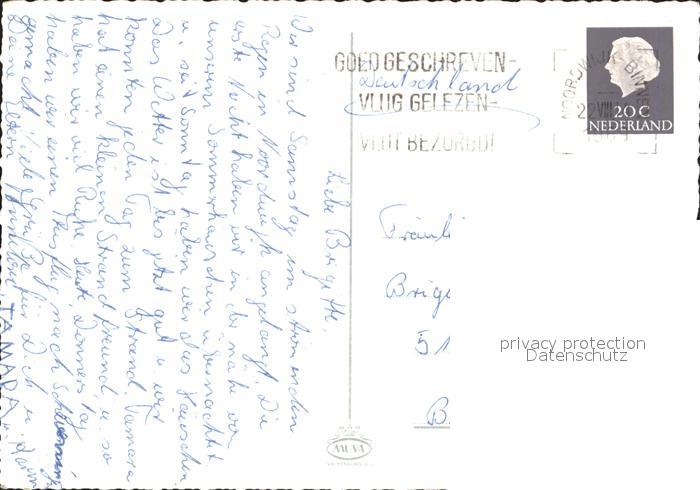 Liebe Brigitte,
Wir sind Samstag im strömenden
Regen in Noordwijk angelangt. Die
erste Nacht haben wir in der Nähe von
unserm Sommerhäuschen übernachtet
u. seit Sonntag haben wir das Häuschen.
Das Wetter ist bis jetzt gut u. wir
konnten jeden Tag zum Strand. Tamara
hat einen kleinen Strandfreund, u. so
haben wir viel Ruhe. Heute, Donnerstag
haben wir einen Ausflug nach Scheveningen
gemacht. Viele Grüße für Dich u.
Deine
TAMARA
GOED GESCHREVEN-
VLUG GELEZEN-
VLUT BEZORGD!
Deutschland
NOORDWIJK-BINNEN
22 VIII
20 C
NEDERLAND
Fräul
Brig
51
B.
privacy protection
Datenschutz
MUVA
VALKENBURG